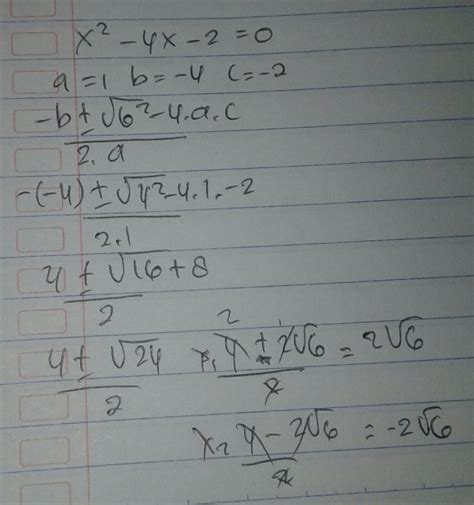 x² - 4x - 2 = 0
a = 1 b = -4 c = -2
-b ± √b² - 4.a.c
2.a
-(-4) ± √4² - 4.1.-2
2.1
4 ± √16 + 8
2
4 ± √24
2
2 1
x₁ 4 ± 2√6 = 2√6
2
x₂ 4 - 2√6 = -2√6
2